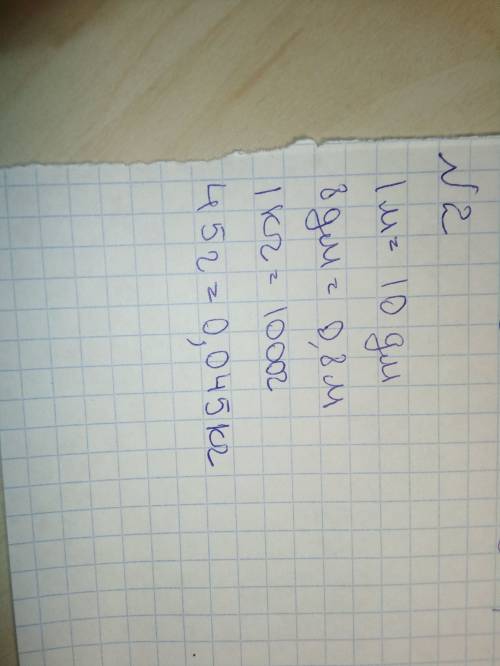 № 2
1 м = 10 дм
8 дм = 0,8 м
1 кг = 1000 г
45 г = 0,045 кг